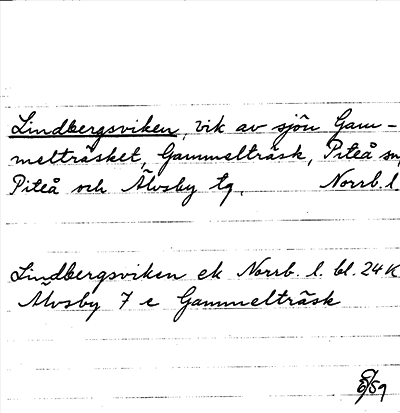 Lindbergsviken, vik av sjön Gam-
melträsket, Gammelträsk, Piteå sn,
Piteå och Älvsby tg. Norrb. l
Lindbergsviken ek Norrb. l. bl. 24 K
Älvsby 7 e Gammelträsk
/59